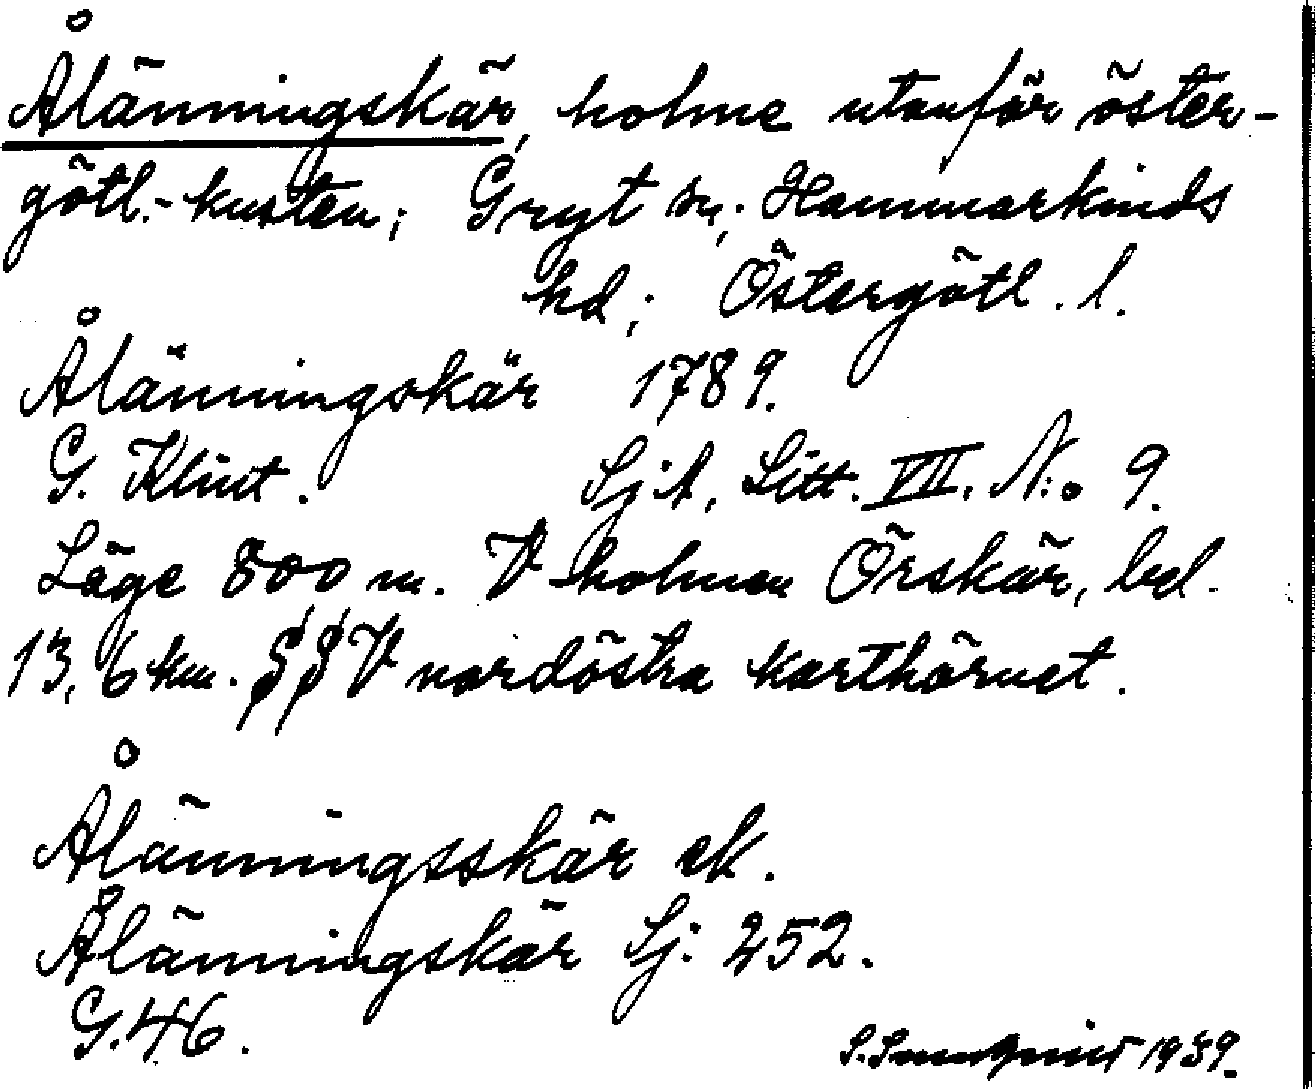 Ålänningskär, holme utanför öster-
götl.-kusten; Gryt sn; Hammarkinds
hd; Östergötl. l.
Ålänningskär 1789.
G. Klint. Sjk, Litt. VII. N:o 9.
Läge 800 m. V holmen Örskär, bel.
13,6 km. SSV nordöstra karthörnet.
Ålänningsskär ek.
Ålänningskär Sj: 252.
G.46.
S. 1939.